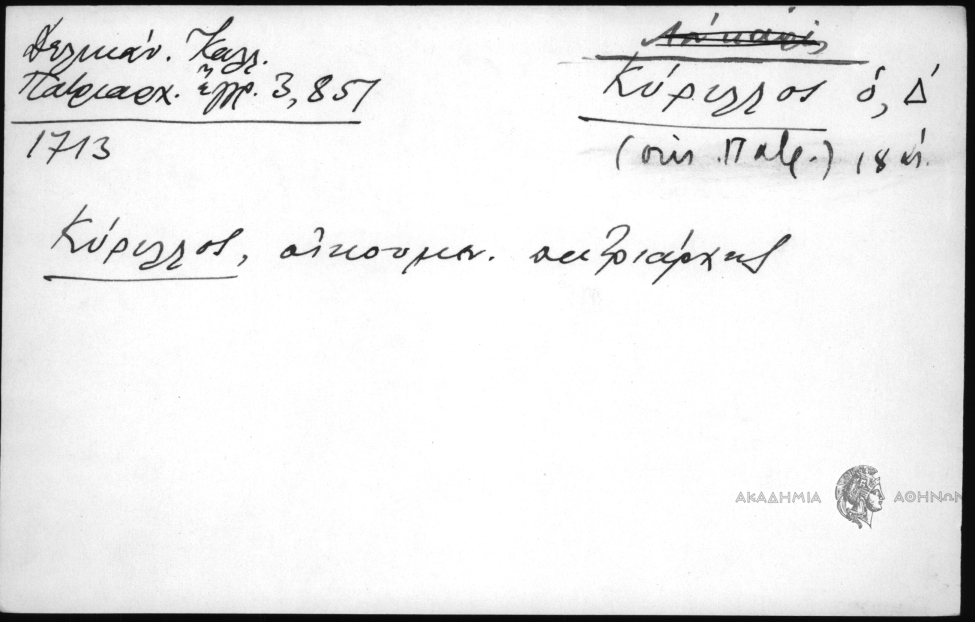 Δελικάν. Καλλ.
Πατριαρχ. ἔγγρ. 3, 857
1713
Κύριλλος ὁ, Δ
(οἰκ. Πατρ.) 18 αἰ.
Κύριλλος, οἰκουμεν. πατριάρχης
ΑΚΑΔΗΜΙΑ ΑΘΗΝΩΝ